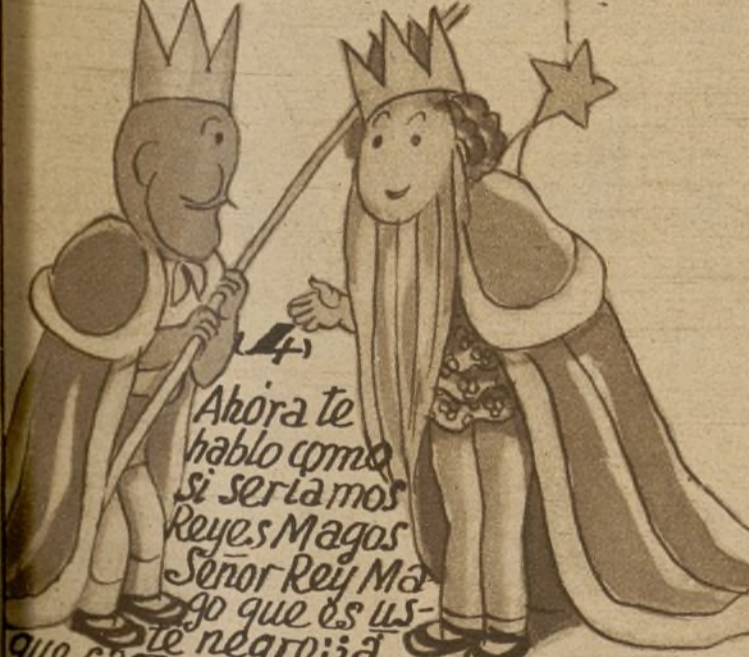 (4)
Ahora te
hablo como
si seríamos
Reyes Magos
Señor Rey Ma-
go que es us-
té negro: ¿a
que